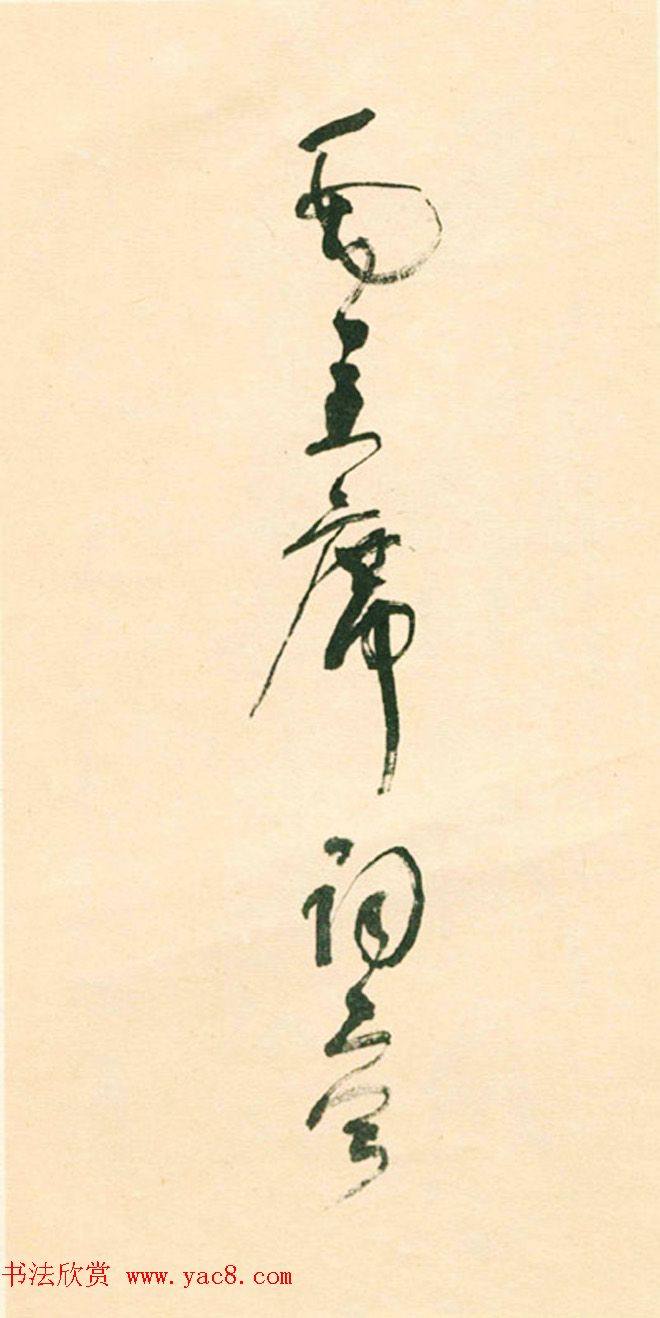 毛主席词二首
书法欣赏 www.yac8.com